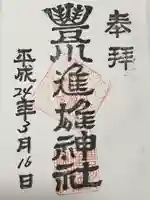 奉拝
豊川進雄神社
平成24年5月16日